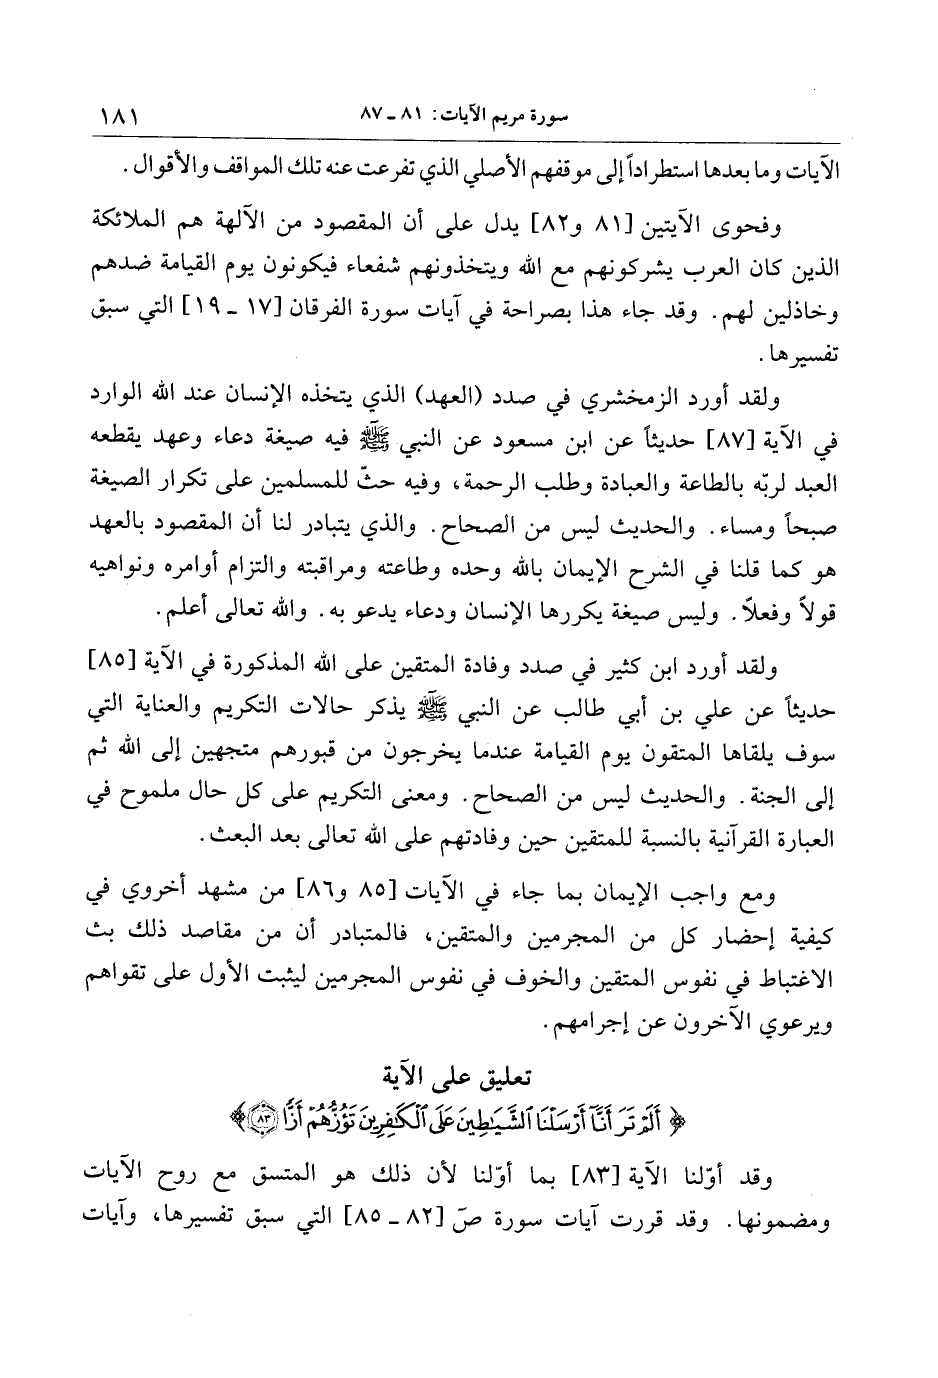 سورة مريم الآيات: ٨١ ـ ٨٧ ١٨١
الآيات وما بعدها استطراداً إلى موقفهم الأصلي الذي تفرعت عنه تلك المواقف والأقوال.
وفحوى الآيتين [٨١ و٨٢] يدل على أن المقصود من الآلهة هم الملائكة
الذين كان العرب يشركونهم مع الله ويتخذونهم شفعاء فيكونون يوم القيامة ضدهم
وخاذلين لهم. وقد جاء هذا بصراحة في آيات سورة الفرقان [١٧ ـ ١٩] التي سبق
تفسيرها.
ولقد أورد الزمخشري في صدد (العهد) الذي يتخذه الإنسان عند الله الوارد
في الآية [٨٧] حديثاً عن ابن مسعود عن النبي ﷺ فيه صيغة دعاء وعهد يقطعه
العبد لربّه بالطاعة والعبادة وطلب الرحمة، وفيه حثّ للمسلمين على تكرار الصيغة
صبحاً ومساء. والحديث ليس من الصحاح. والذي يتبادر لنا أن المقصود بالعهد
هو كما قلنا في الشرح الإيمان بالله وحده وطاعته ومراقبته والتزام أوامره ونواهيه
قولاً وفعلاً. وليس صيغة يكررها الإنسان ودعاء يدعو به. والله تعالى أعلم.
ولقد أورد ابن كثير في صدد وفادة المتقين على الله المذكورة في الآية [٨٥]
حديثاً عن علي بن أبي طالب عن النبي ﷺ يذكر حالات التكريم والعناية التي
سوف يلقاها المتقون يوم القيامة عندما يخرجون من قبورهم متجهين إلى الله ثم
إلى الجنة. والحديث ليس من الصحاح. ومعنى التكريم على كل حال ملموح في
العبارة القرآنية بالنسبة للمتقين حين وفادتهم على الله تعالى بعد البعث.
ومع واجب الإيمان بما جاء في الآيات [٨٥ و٨٦] من مشهد أخروي في
كيفية إحضار كل من المجرمين والمتقين، فالمتبادر أن من مقاصد ذلك بث
الاغتباط في نفوس المتقين والخوف في نفوس المجرمين ليثبت الأول على تقواهم
ويرعوي الآخرون عن إجرامهم.
تعليق على الآية
﴿أَلَمْ تَرَ أَنَّآ أَرْسَلْنَا ٱلشَّيَٰطِينَ عَلَى ٱلْكَٰفِرِينَ تَؤُزُّهُمْ أَزًّا ٨٣﴾
وقد أوّلنا الآية [٨٣] بما أوّلنا لأن ذلك هو المتسق مع روح الآيات
ومضمونها. وقد قررت آيات سورة صَ [٨٢ ـ ٨٥] التي سبق تفسيرها، وآيات